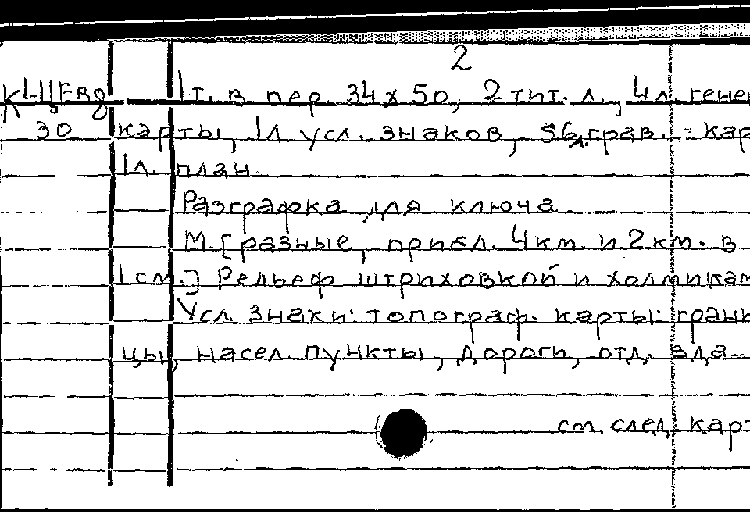 2
1т. в пер. 34х50, 2 тит. л., 4 л. гене
30 карты, 1л усл. знаков, 36 грав. кар
1л. план
Разграфка для ключа
М. [разные, прибл. 4км. и 2км. в
1см.] Рельеф штриховкой и холмикам
Усл. знаки: топограф. карты: грани
цы, насел. пункты, дороги, отд. зда
см. след. карт